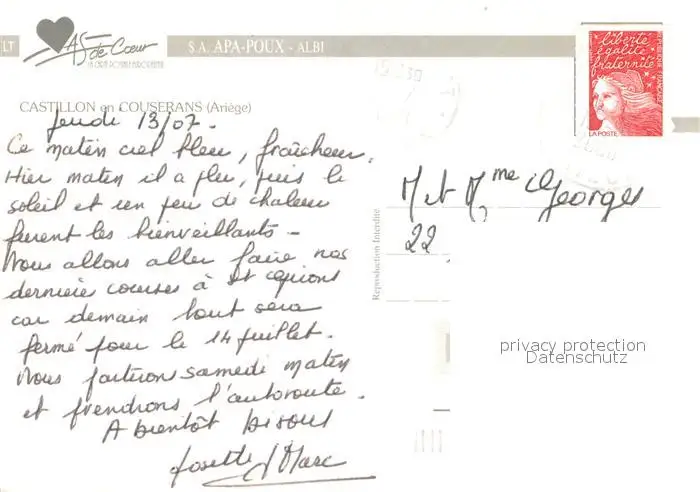 LT
AS de Cœur
S.A. APA-POUX - ALBI
CASTILLON en COUSERANS (Ariège)
Jeudi 13/07.
Ce matin ciel bleu, fraîcheur.
Hier matin il a plu, puis le
soleil et un peu de chaleur
furent les bienveillants -
Nous allons aller faire nos
dernières courses à St
car demain tout sera
fermé pour le 14 juillet.
Nous partirons samedi matin
et prendrons l'autoroute.
A bientôt bisous
Josette Marc
Reproduction Interdite
liberté
égalité
fraternité
RÉPUBLIQUE FRANÇAISE
LA POSTE
M et Mme Georges
22
privacy protection
Datenschutz